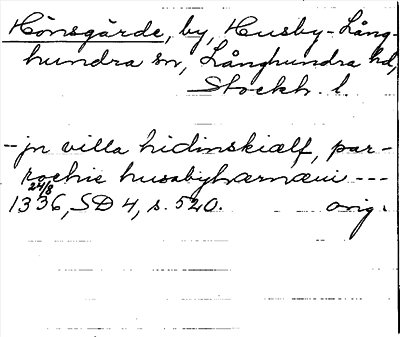 Hönsgärde, by, Husby-Lång-
hundra sn, Långhundra hd,
Stockh. l.
- jn villa hidinskiælf, par-
rochie husabyhærnæui ---
24/8
1336, SD 4, s. 520. orig.